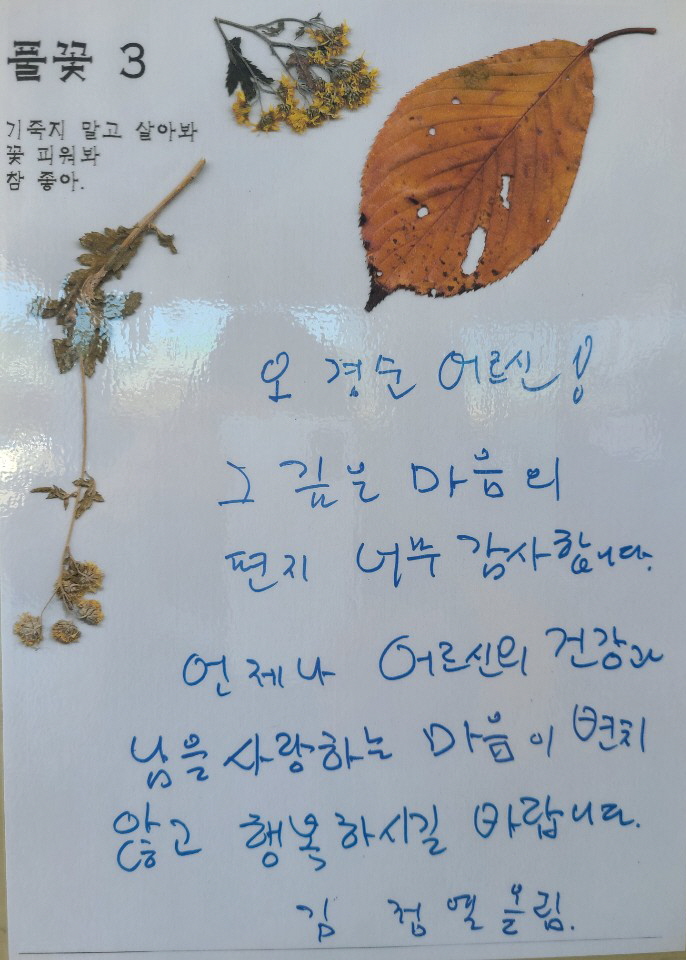 풀꽃 3
기죽지 말고 살아봐
꽃 피워봐
참 좋아.
오 경순 어르신!
그 깊은 마음의
편지 너무 감사합니다.
언제나 어르신의 건강과
남을 사랑하는 마음이 변치
않고 행복하시길 바랍니다.
김 점열 올림.